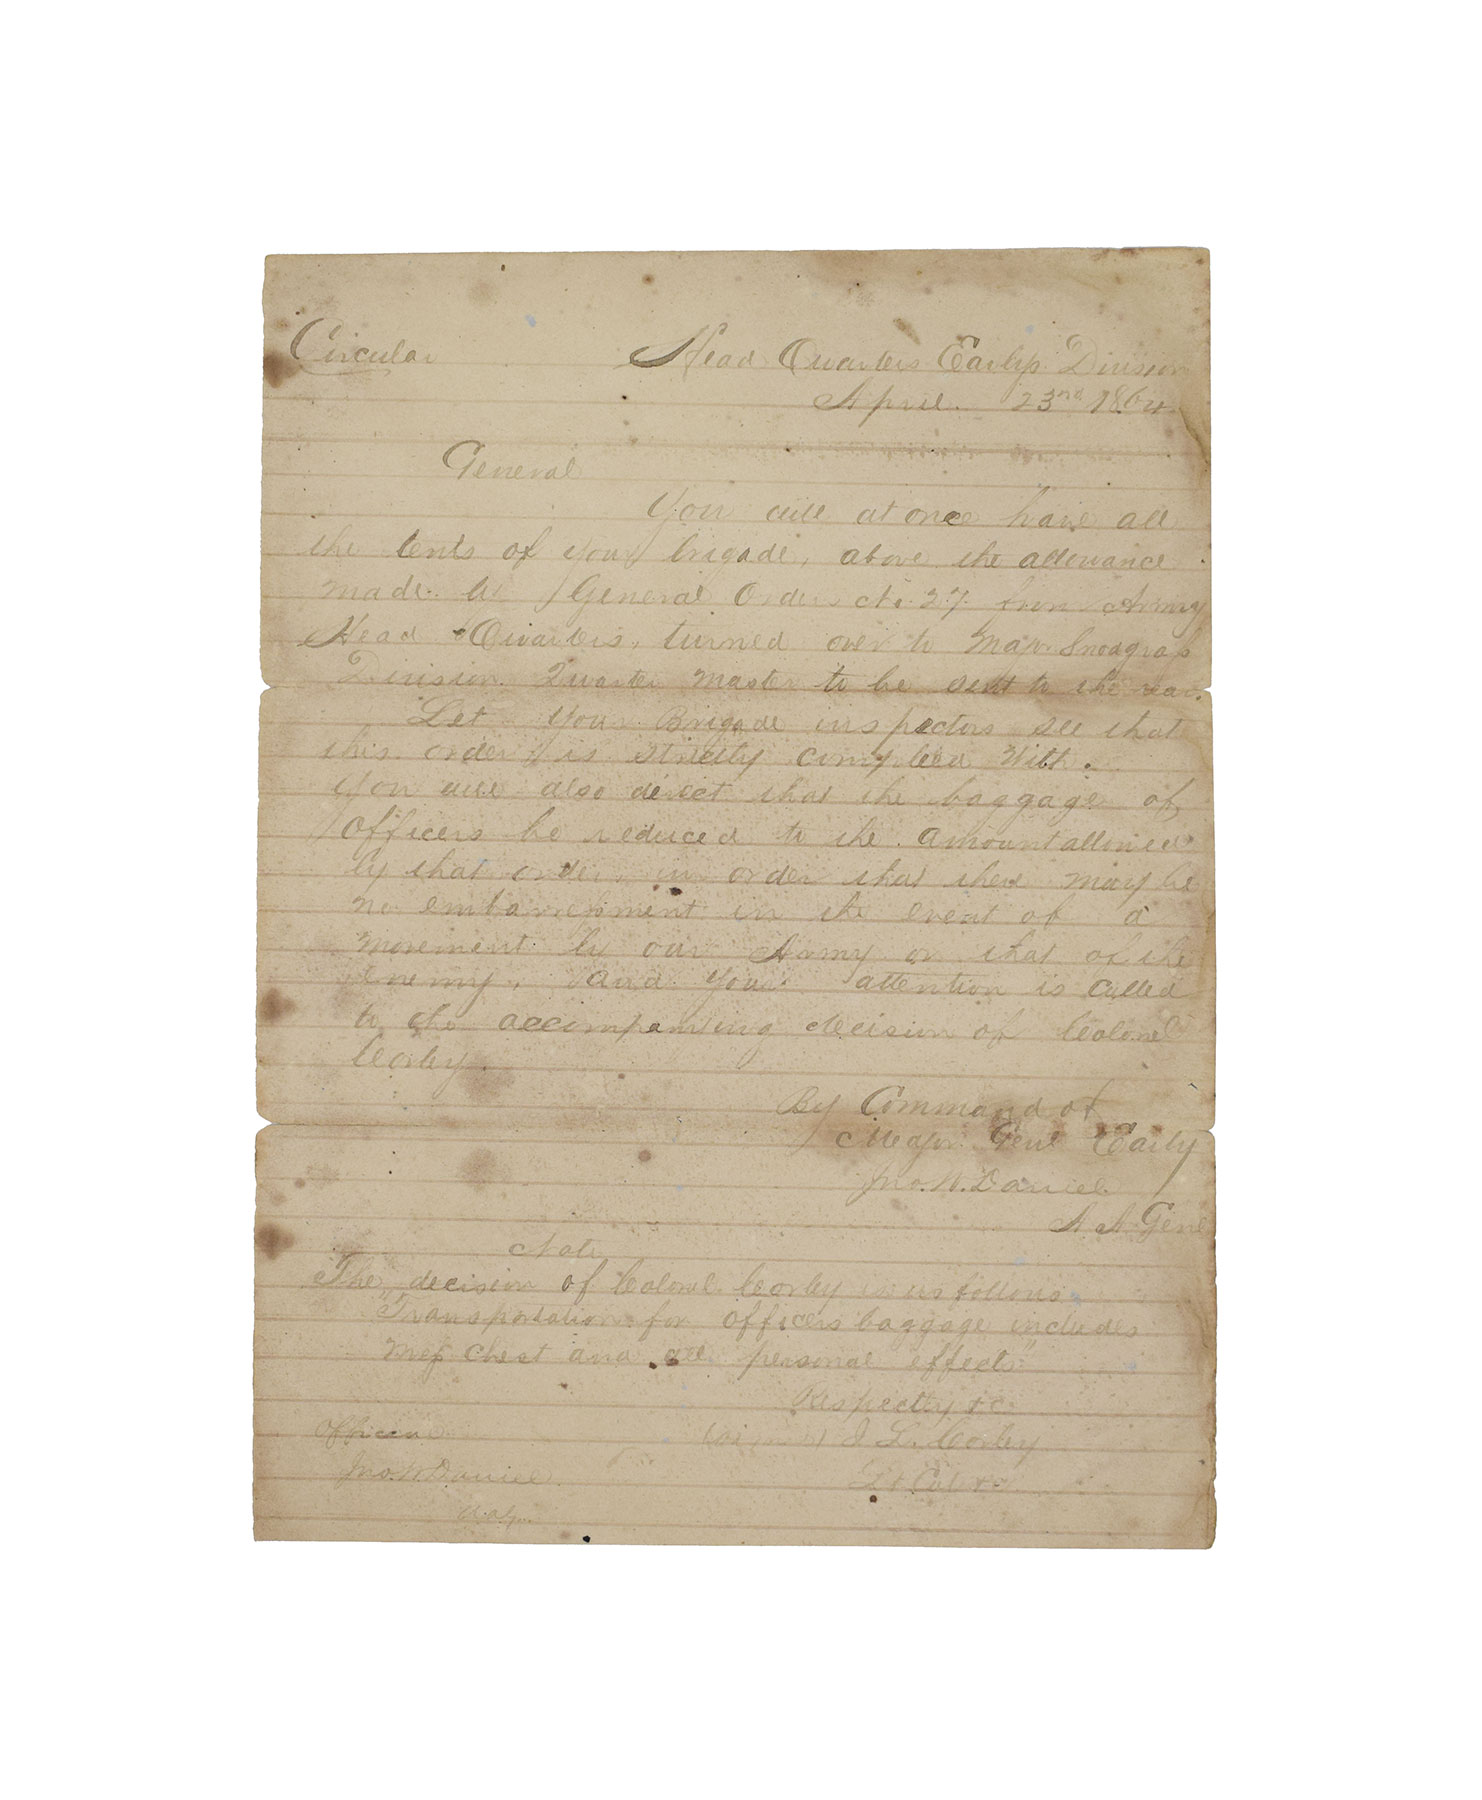 Circular Head Quarters Earlys Division
April. 23rd 1864
General
You will at once have all
the tents of your brigade, above the allowance
made by General Order No 27. from Army
Head Quarters, turned over to Majr. Snodgrass
Division Quarter Master to be sent to the rear.
Let your Brigade inspectors see that
this order is strictly complied with.
You will also direct that the baggage of
Officers be reduced to the amount allowed
by that order, in order that there may be
no embarrassment in the event of a
movement by our Army or that of the
Enemy, and your attention is called
to the accompanying decision of Colonel
Corley.
By Command of
Major Genl Early
Jno. W. Daniel
A A Genl
Note
The decision of Colonel Corley is as follows
"Transportation for Officers baggage includes
Mess Chest and all personal effects"
Respectly &c
(signed) J L. Corley
Lt Col &c
Official
Jno. W Daniel